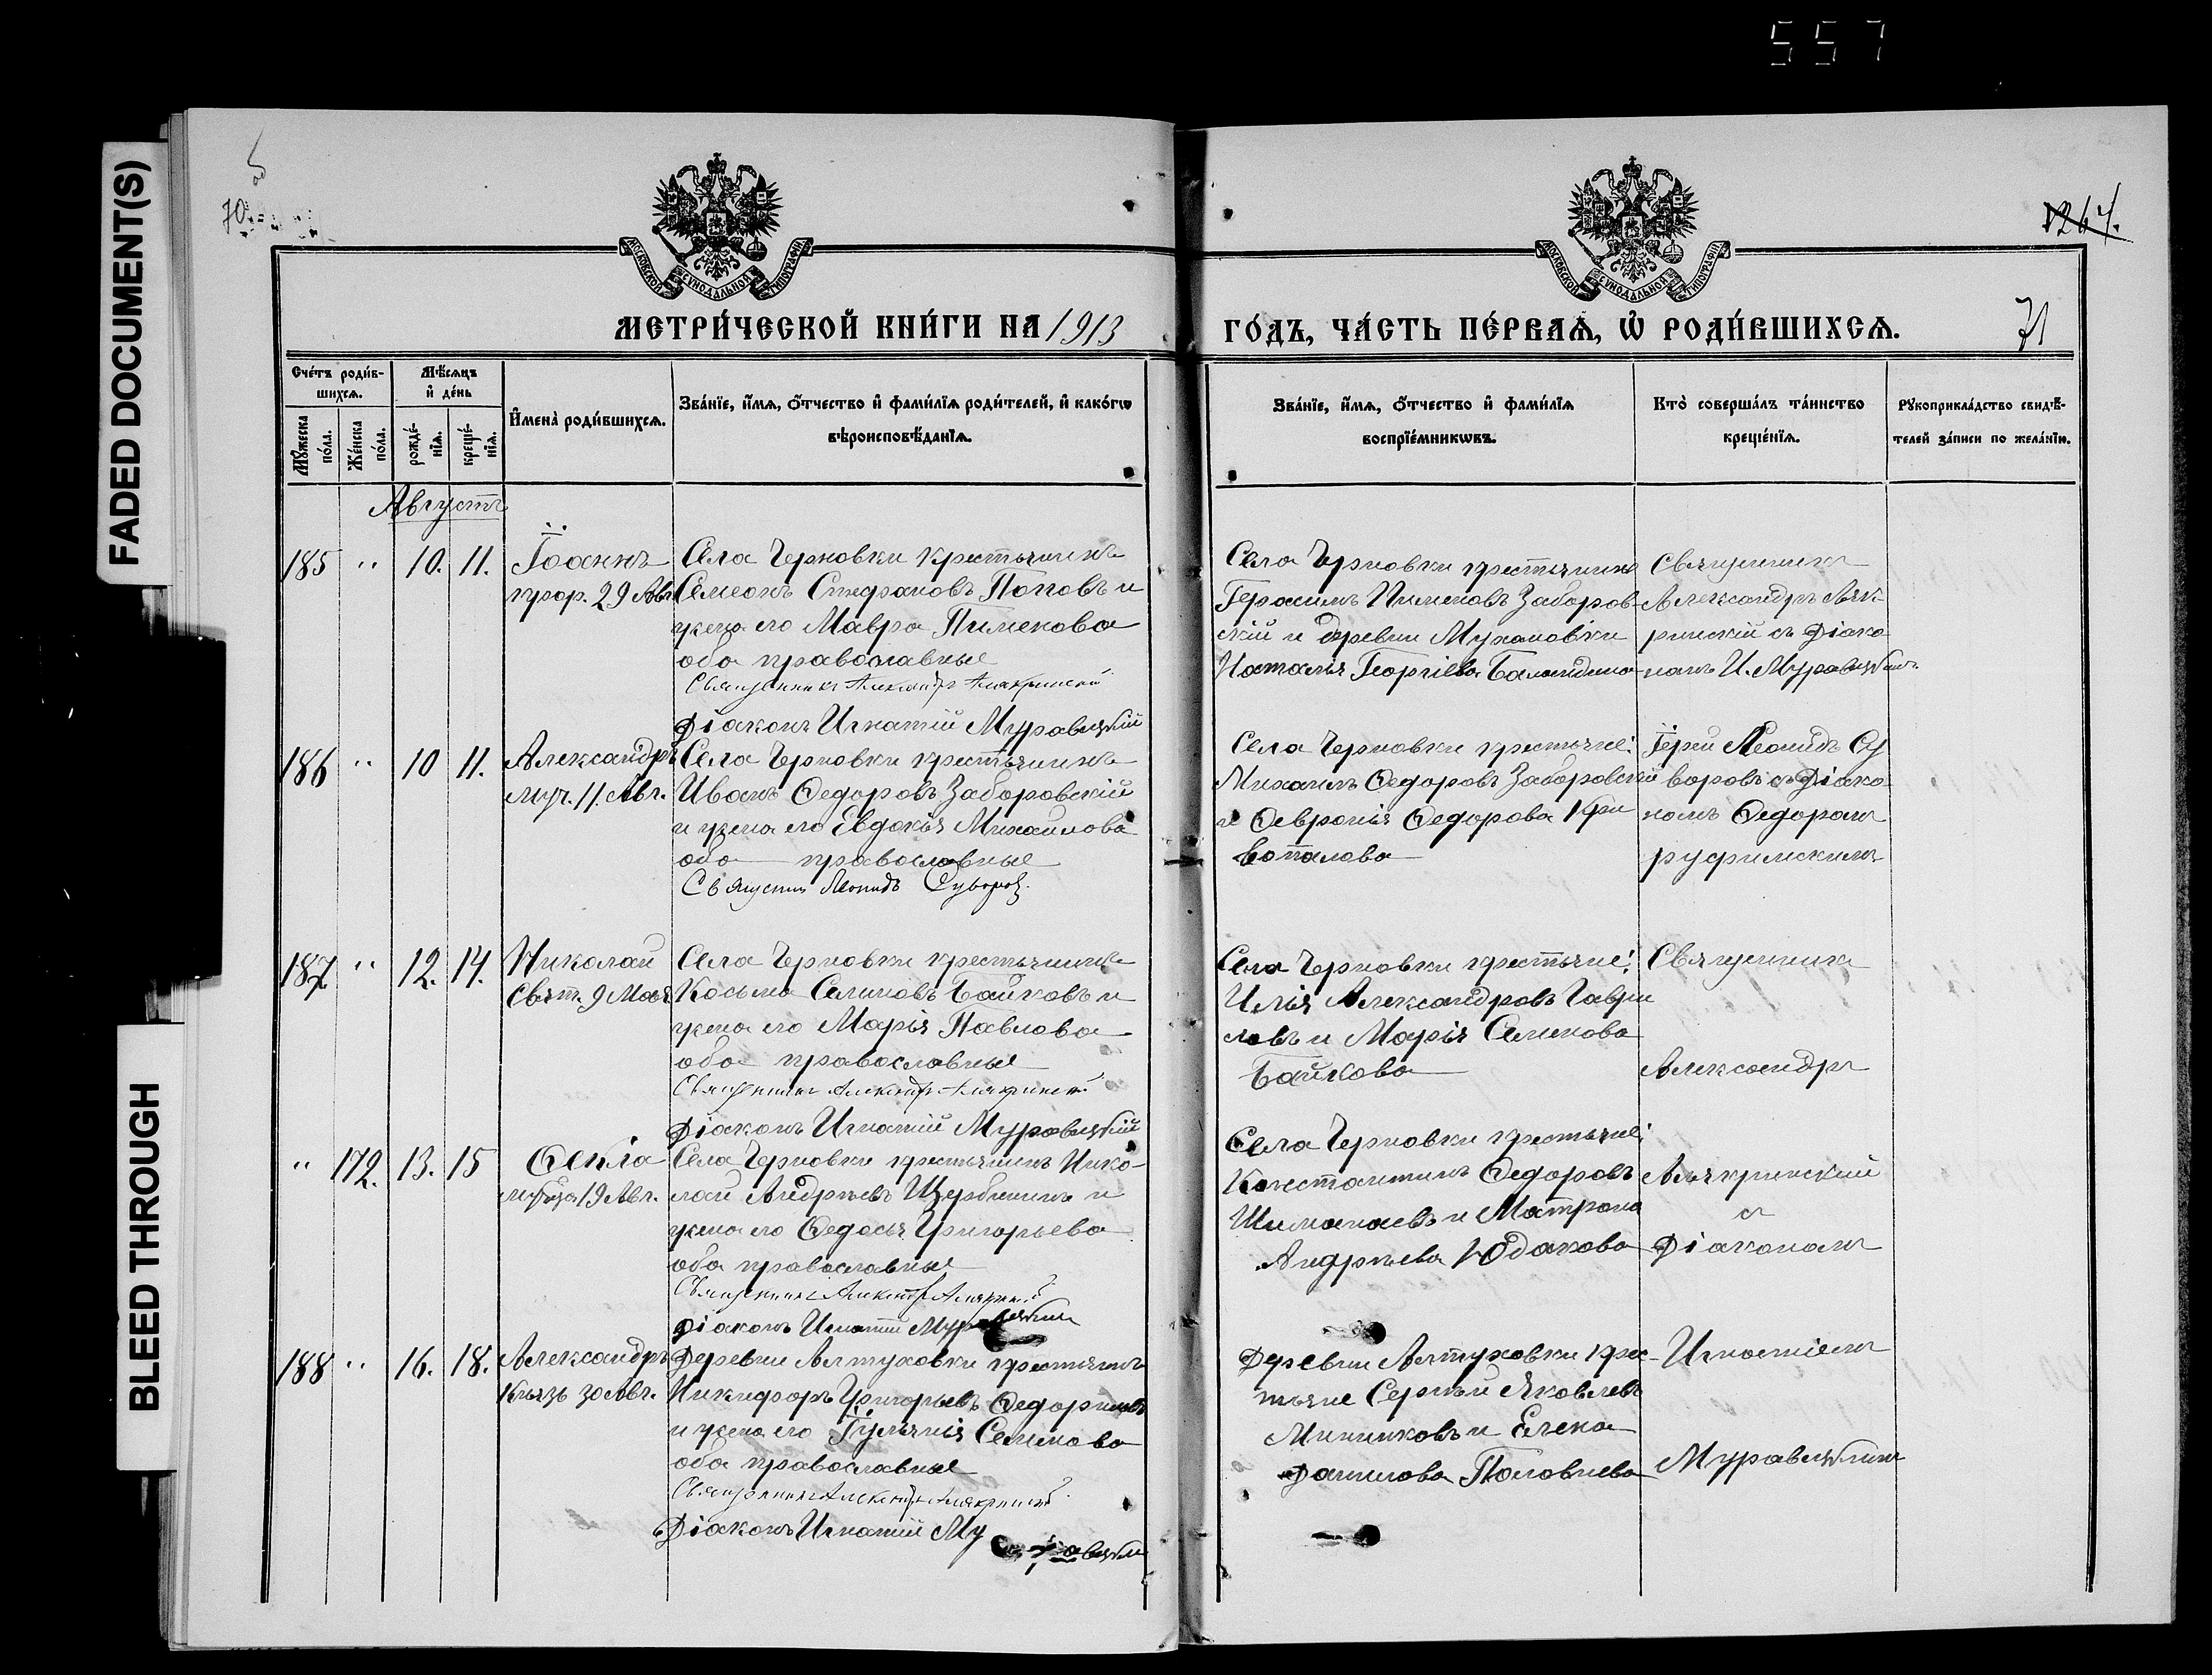 557
FADED DOCUMENT(S)
BLEED THROUGH
70
об
1264.
71
МОСКОВСКОЙ СѴНОДАЛЬНОЙ ТИПОГРАФІИ
МОСКОВСКОЙ СѴНОДАЛЬНОЙ ТИПОГРАФІИ
МЕТРИ́ЧЕСКОЙ КНИ́ГИ НА 1913
ГО́ДЪ, ЧА́СТЬ ПЕ́РВАѦ, Ѡ҆ РОДИ́ВШИХСѦ.
Сче́тъ роди́в-
шихсѧ.
Мꙋ́жеска по́ла.
Же́нска по́ла.
Мѣ́сѧцъ и҆ де́нь
рожде́-
нїѧ.
креще́-
нїѧ.
И҆мена̀ роди́вшихсѧ.
Зва́нїе, и҆́мѧ, ѻ҆́тчество и҆ фами́лїѧ роди́телей, и҆ како́гѡ
вѣроисповѣ́данїѧ.
Зва́нїе, и҆́мѧ, ѻ҆́тчество и҆ фами́лїѧ
воспрїе́мникѡвъ.
Кто̀ соверша́лъ та́инство
креще́нїѧ.
Рꙋкоприкла́дство свидѣ́-
телей за́писи по жела́нїю.
Августъ
185 " 10. 11. Іоаннъ
прор. 29 Авг.
Села Черновки крестьянинъ
Симеонъ Стефановъ Поповъ и
жена его Мавра Пименова
оба православные
Священникъ Александръ Алякринскій
Діаконъ Игнатій Муравицкій
Села Черновки крестьянинъ
Герасимъ Пименовъ Заборов-
скій и деревни Мухановки
Наталья Георгіева Баландина
Священникъ
Александръ Аляк-
ринскій съ діако
номъ И. Муравицкимъ
186 " 10 11. Александръ
муч. 11 Авг.
Села Черновки крестьянинъ
Иванъ Ѳедоровъ Заборовскій
и жена его Евдокія Михайлова
оба православные
Священникъ Леонидъ Суворов
Села Черновки крестьяне:
Михаилъ Ѳедоровъ Заборовскій
и Ѳевронія Ѳедорова Кри
вопалова
Іерей Леонидъ Су
воровъ съ діако
номъ Ѳедоромъ
187 " 12. 14. Николай
Свят. 9 Мая
Села Черновки крестьянинъ
Косьма Семеновъ Байковъ и
жена его Марія Павлова
оба православные
Священникъ Александръ Алякринскій
Діаконъ Игнатій Муравицкій
Села Черновки крестьяне:
Илья Александровъ Гаври
ловъ и Марія Семенова
Байкова
Священникъ
Александръ
" 172. 13. 15 Ѳекла
муч-ца 19 Авг.
Села Черновки крестьянинъ Нико-
лай Андреевъ Щербининъ и
жена его Ѳедосья Григорьева
оба православные
Священникъ Александръ Алякринскій
Діаконъ Игнатій Муравицкій
Села Черновки крестьяне:
Константинъ Ѳедоровъ
и Матрона
Андреева Юдакова
Алякринскій
съ
Діакономъ
188 " 16. 18. Александръ
Князь 30 Авг.
Деревни Алтуховки крестьянинъ
Никифоръ Григорьевъ
и жена его Іуліанія Семенова
оба православные
Священникъ Александръ Алякринскій
Діаконъ Игнатій Му
равицкій
Деревни Алтуховки крес-
тьяне Сергѣй Яковлевъ
Мининковъ и Елена
Данилова Половнева
Игнатіемъ
Муравицкимъ